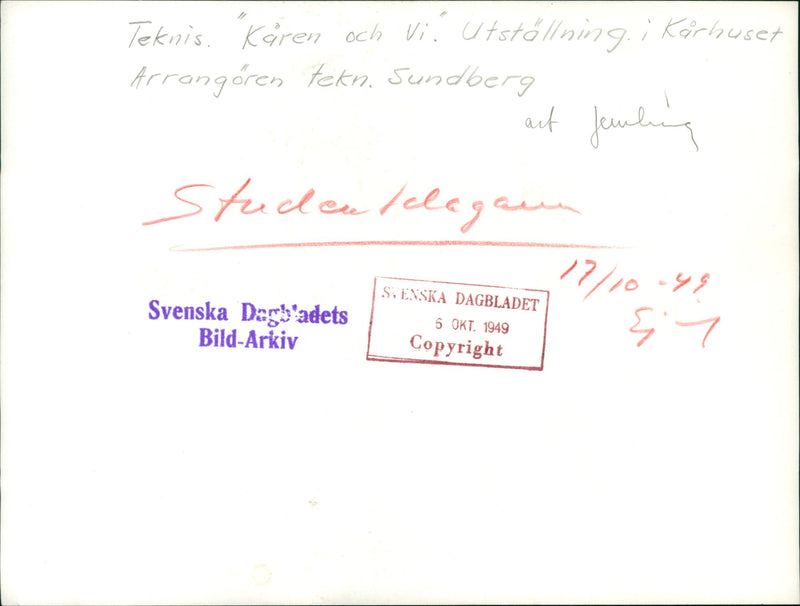 Teknis. "Kåren och Vi". Utställning. i Kårhuset
Arrangören tekn. Sundberg
art
17/10 -49
Ej
SVENSKA DAGBLADET
6 OKT. 1949
Copyright
Svenska Dagbladets
Bild-Arkiv